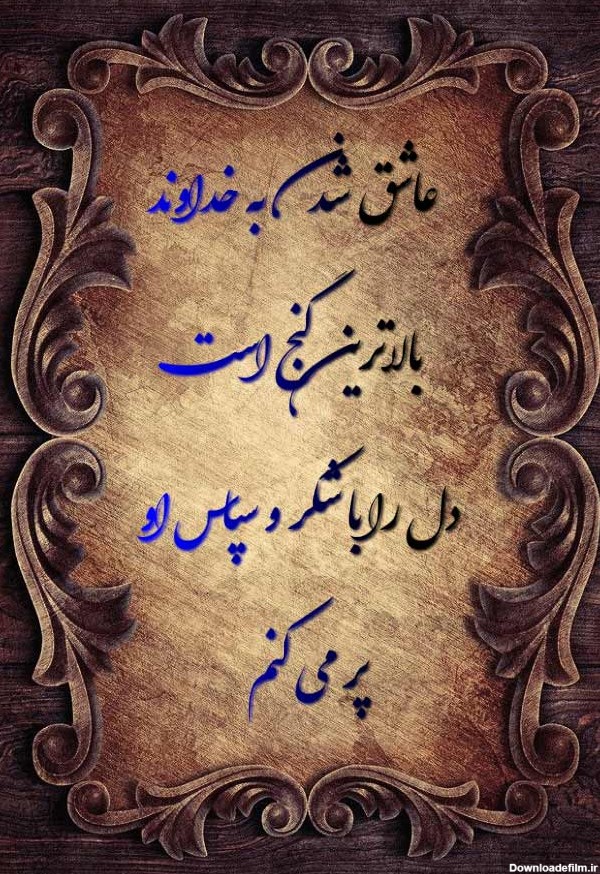 عاشق شدن به خداوند
بالاترین گنج است
دل را با شکر و سپاس او
پر می کنم
Downloadefilm.ir